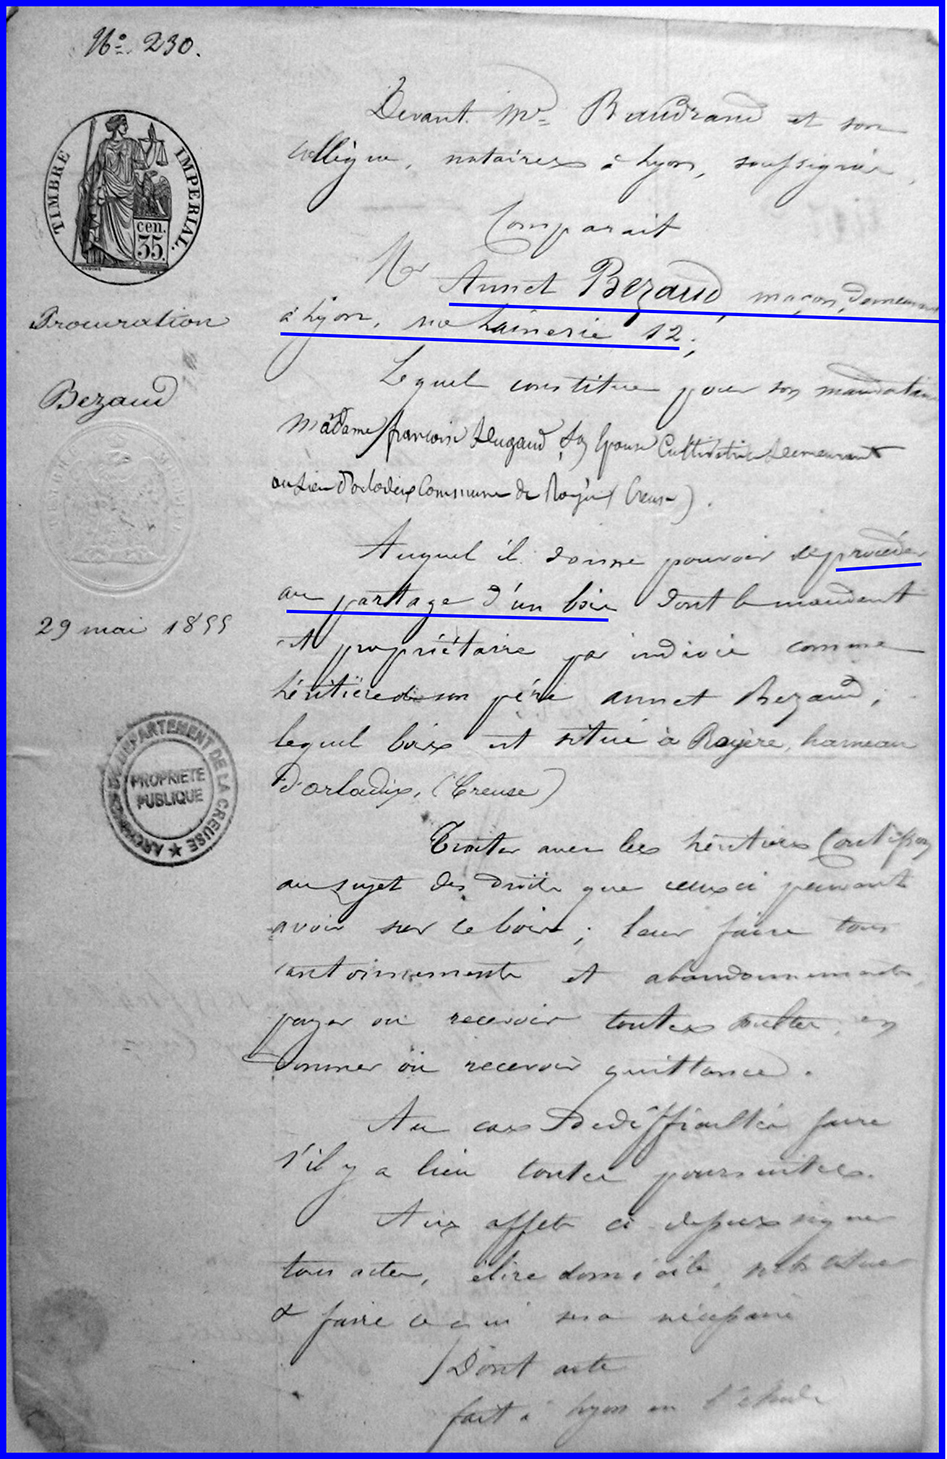 No. 230.
TIMBRE IMPERIAL.
cen.
35.
Procuration
Bezaud
29 mai 1855
ARCHIVES DU DÉPARTEMENT DE LA CREUSE
PROPRIÉTÉ
PUBLIQUE
Devant Me Beaudrand et son
collègue, notaires à Lyon, soussignés,
Comparait
Mr Annet Bezaud, maçon, demeurant
à Lyon, rue Lainerie 12;
Lequel constitue pour son mandataire
Madame françoise Dugaud, Son Epouse Cultivatrice demeurant
au lieu Commune de Royère (Creuse).
Auquel il donne pouvoir de procéder
au partage d'un bois dont le mandant
est propriétaire par indivis comme
héritier de son père annet Bezaud,
lequel bois est situé à Royère, hameau
D'orladix, (Creuse)
Traiter avec les héritiers
au sujet des droits que ceux ci peuvent
avoir sur ce bois; leur faire tous
cantonnements et abandonnements,
payer ou recevoir toutes soultes, en
donner ou recevoir quittance.
Au cas de difficultés faire
s'il y a lieu toutes poursuites.
Aux effets ci-dessus signer
tous actes, élire domicile, substituer
& faire ce qui sera nécessaire
Dont acte
fait à Lyon en l'étude